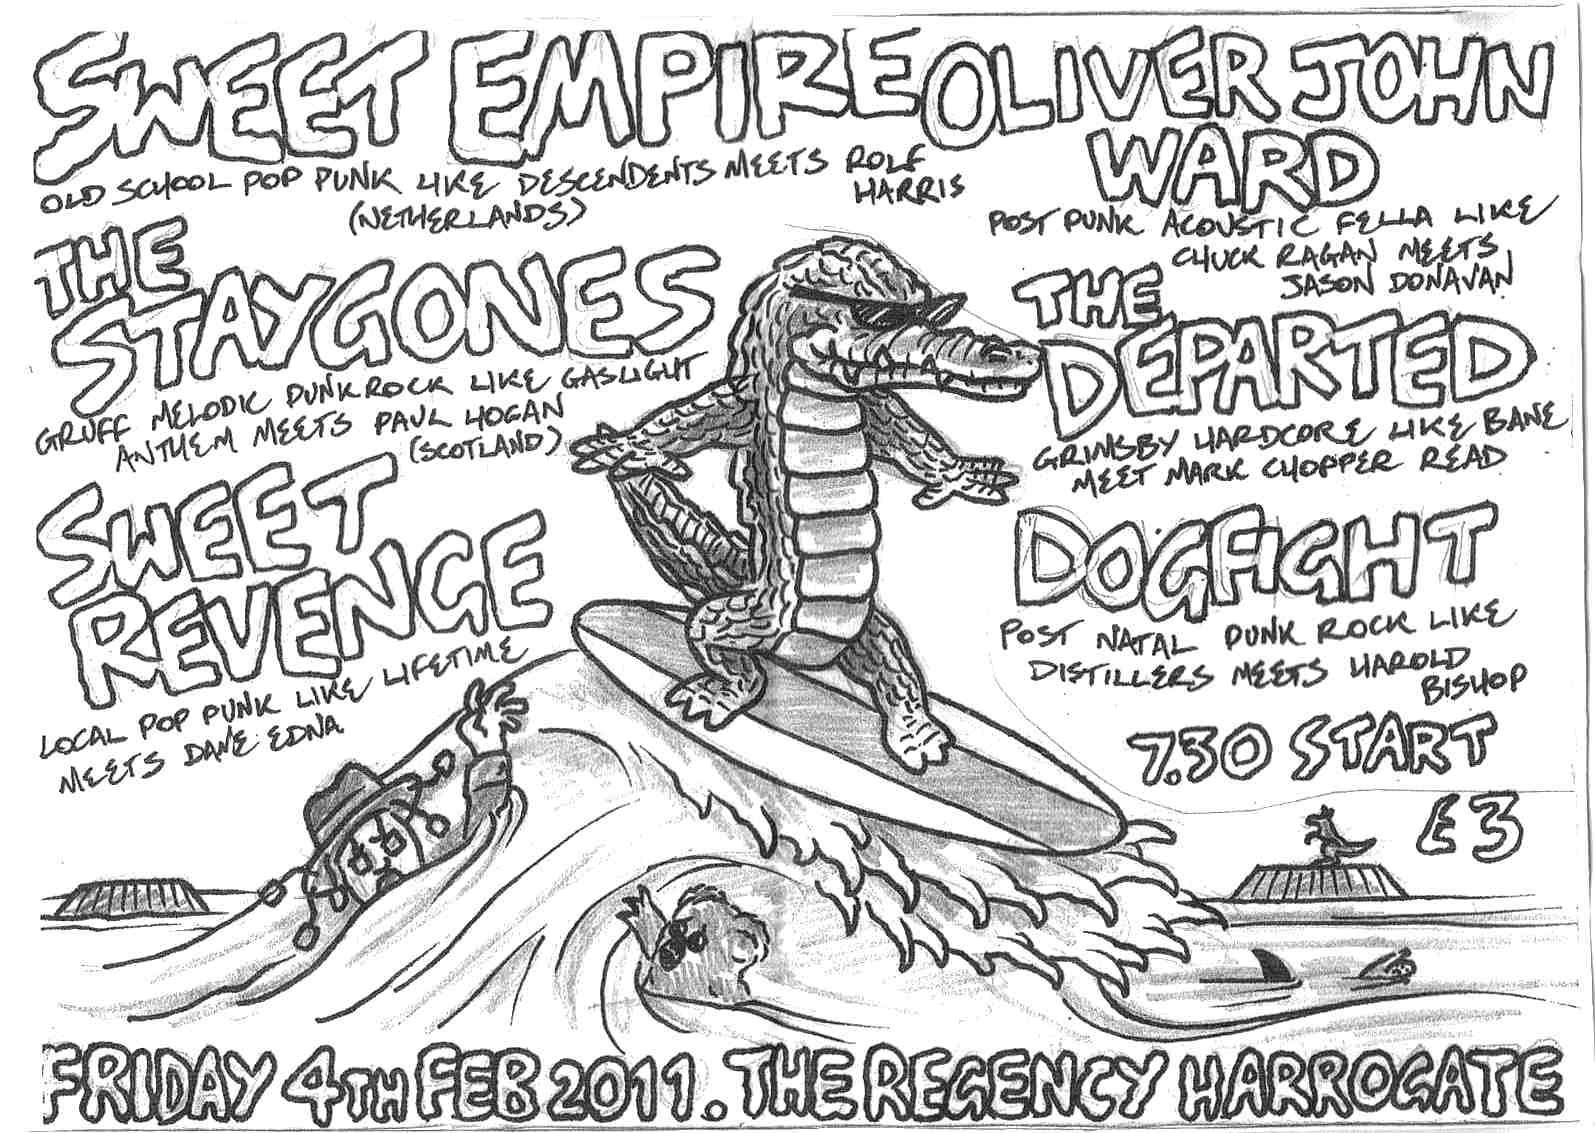 SWEET EMPIRE
OLD SCHOOL POP PUNK LIKE DESCENDENTS MEETS ROLF
HARRIS
(NETHERLANDS)
THE
STAYGONES
GRUFF MELODIC PUNKROCK LIKE GASLIGHT
ANTHEM MEETS PAUL HOGAN
(SCOTLAND)
SWEET
REVENGE
LOCAL POP PUNK LIKE LIFETIME
MEETS DANE EDNA
OLIVER JOHN
WARD
POST PUNK ACOUSTIC FELLA LIKE
CHUCK RAGAN MEETS
JASON DONAVAN
THE
DEPARTED
GRIMSBY HARDCORE LIKE BANE
MEET MARK CHOPPER READ
DOGFIGHT
POST NATAL PUNK ROCK LIKE
DISTILLERS MEETS HAROLD
BISHOP
7.30 START
£3
FRIDAY 4TH FEB 2011. THE REGENCY HARROGATE